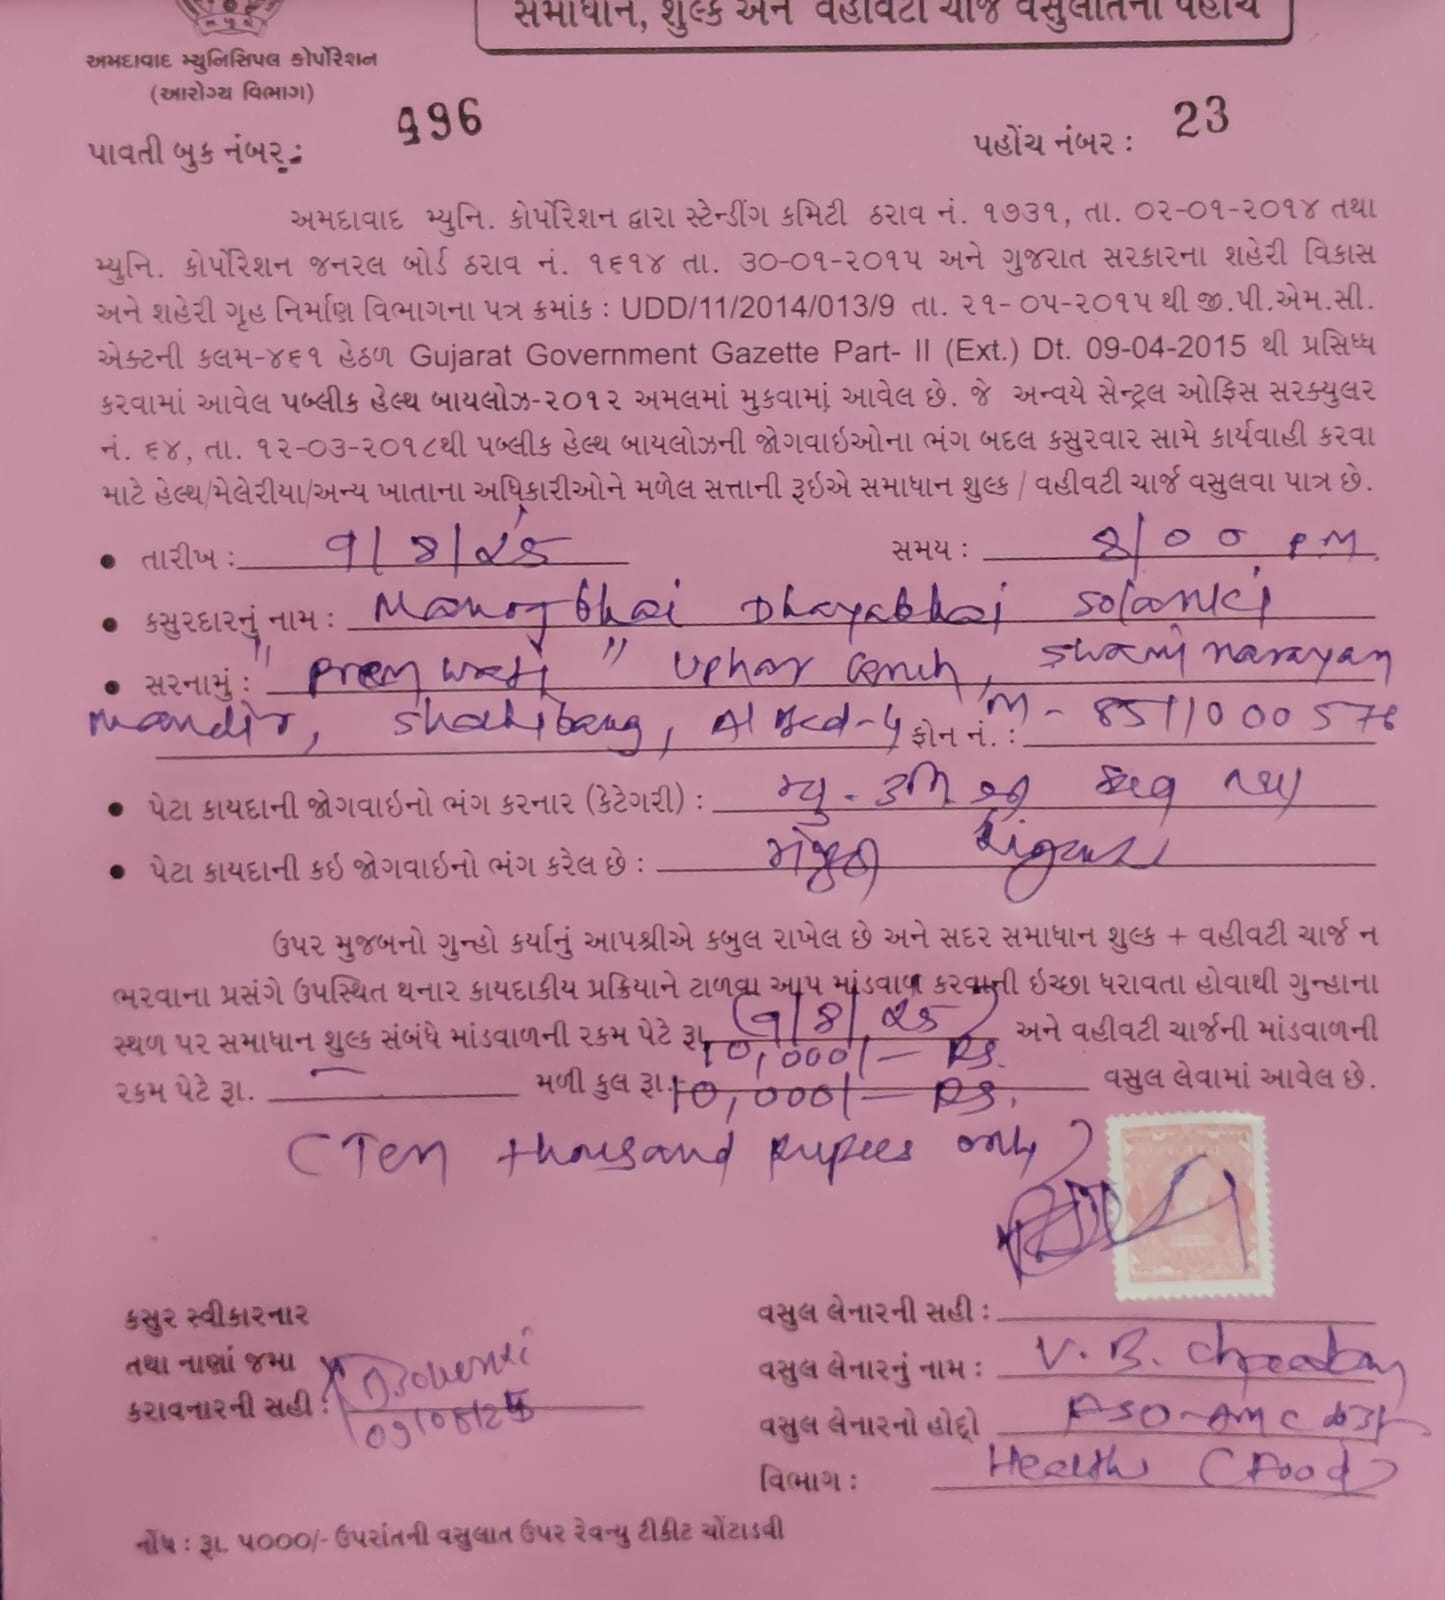 સમાધાન, શુલ્ક અને વહીવટી ચાર્જ વસુલાતની પહોંચ
અમદાવાદ મ્યુનિસિપલ કોર્પોરેશન
(આરોગ્ય વિભાગ)
પાવતી બુક નંબર : 996 પહોંચ નંબર : 23
અમદાવાદ મ્યુનિ. કોર્પોરેશન દ્વારા સ્ટેન્ડીંગ કમિટી ઠરાવ નં. ૧૭૩૧, તા. ૦૨-૦૧-૨૦૧૪ તથા
મ્યુનિ. કોર્પોરેશન જનરલ બોર્ડ ઠરાવ નં. ૧૬૧૪ તા. ૩૦-૦૧-૨૦૧૫ અને ગુજરાત સરકારના શહેરી વિકાસ
અને શહેરી ગૃહ નિર્માણ વિભાગના પત્ર ક્રમાંક : UDD/11/2014/013/9 તા. ૨૧-૦૫-૨૦૧૫ થી જી.પી.એમ.સી.
એક્ટની કલમ-૪૬૧ હેઠળ Gujarat Government Gazette Part- II (Ext.) Dt. 09-04-2015 થી પ્રસિધ્ધ
કરવામાં આવેલ પબ્લીક હેલ્થ બાયલોઝ-૨૦૧૨ અમલમાં મુકવામાં આવેલ છે. જે અન્વયે સેન્ટ્રલ ઓફિસ સરક્યુલર
નં. ૬૪, તા. ૧૨-૦૩-૨૦૧૮થી પબ્લીક હેલ્થ બાયલોઝની જોગવાઇઓના ભંગ બદલ કસુરવાર સામે કાર્યવાહી કરવા
માટે હેલ્થ/મેલેરીયા/અન્ય ખાતાના અધિકારીઓને મળેલ સત્તાની રૂઇએ સમાધાન શુલ્ક / વહીવટી ચાર્જ વસુલવા પાત્ર છે.
• તારીખ : ૧/8/૨૫ સમય : 8/00 PM
• કસુરદારનું નામ : Manojbhai Dhayabhai Solanki
• સરનામું : "Premwati" Uphar , Swaminarayan
Mandir, Shahibaug, ફોન નં. : M - 8511000576
• પેટા કાયદાની જોગવાઇનો ભંગ કરનાર (કેટેગરી) : મ્યુ.
• પેટા કાયદાની કઇ જોગવાઇનો ભંગ કરેલ છે : મંજુરી
ઉપર મુજબનો ગુન્હો કર્યાનું આપશ્રીએ કબુલ રાખેલ છે અને સદર સમાધાન શુલ્ક + વહીવટી ચાર્જ ન
ભરવાના પ્રસંગે ઉપસ્થિત થનાર કાયદાકીય પ્રક્રિયાને ટાળવા આપ માંડવાળ કરવાની ઇચ્છા ધરાવતા હોવાથી ગુન્હાના
સ્થળ પર સમાધાન શુલ્ક સંબંધે માંડવાળની રકમ પેટે રૂા. (૧/8/૨૫) 10,000/- Rs. અને વહીવટી ચાર્જની માંડવાળની
રકમ પેટે રૂા. — મળી કુલ રૂા. 10,000/- Rs. વસુલ લેવામાં આવેલ છે.
(Ten thousand Rupees only)
કસુર સ્વીકારનાર
તથા નાણાં જમા
કરાવનારની સહી : 09/08/25
વસુલ લેનારની સહી :
વસુલ લેનારનું નામ : V. B.
વસુલ લેનારનો હોદ્દો FSO-AMC
વિભાગ : Health (Food)
નોંધ : રૂા. ૫૦૦૦/- ઉપરાંતની વસુલાત ઉપર રેવન્યુ ટીકીટ ચોંટાડવી